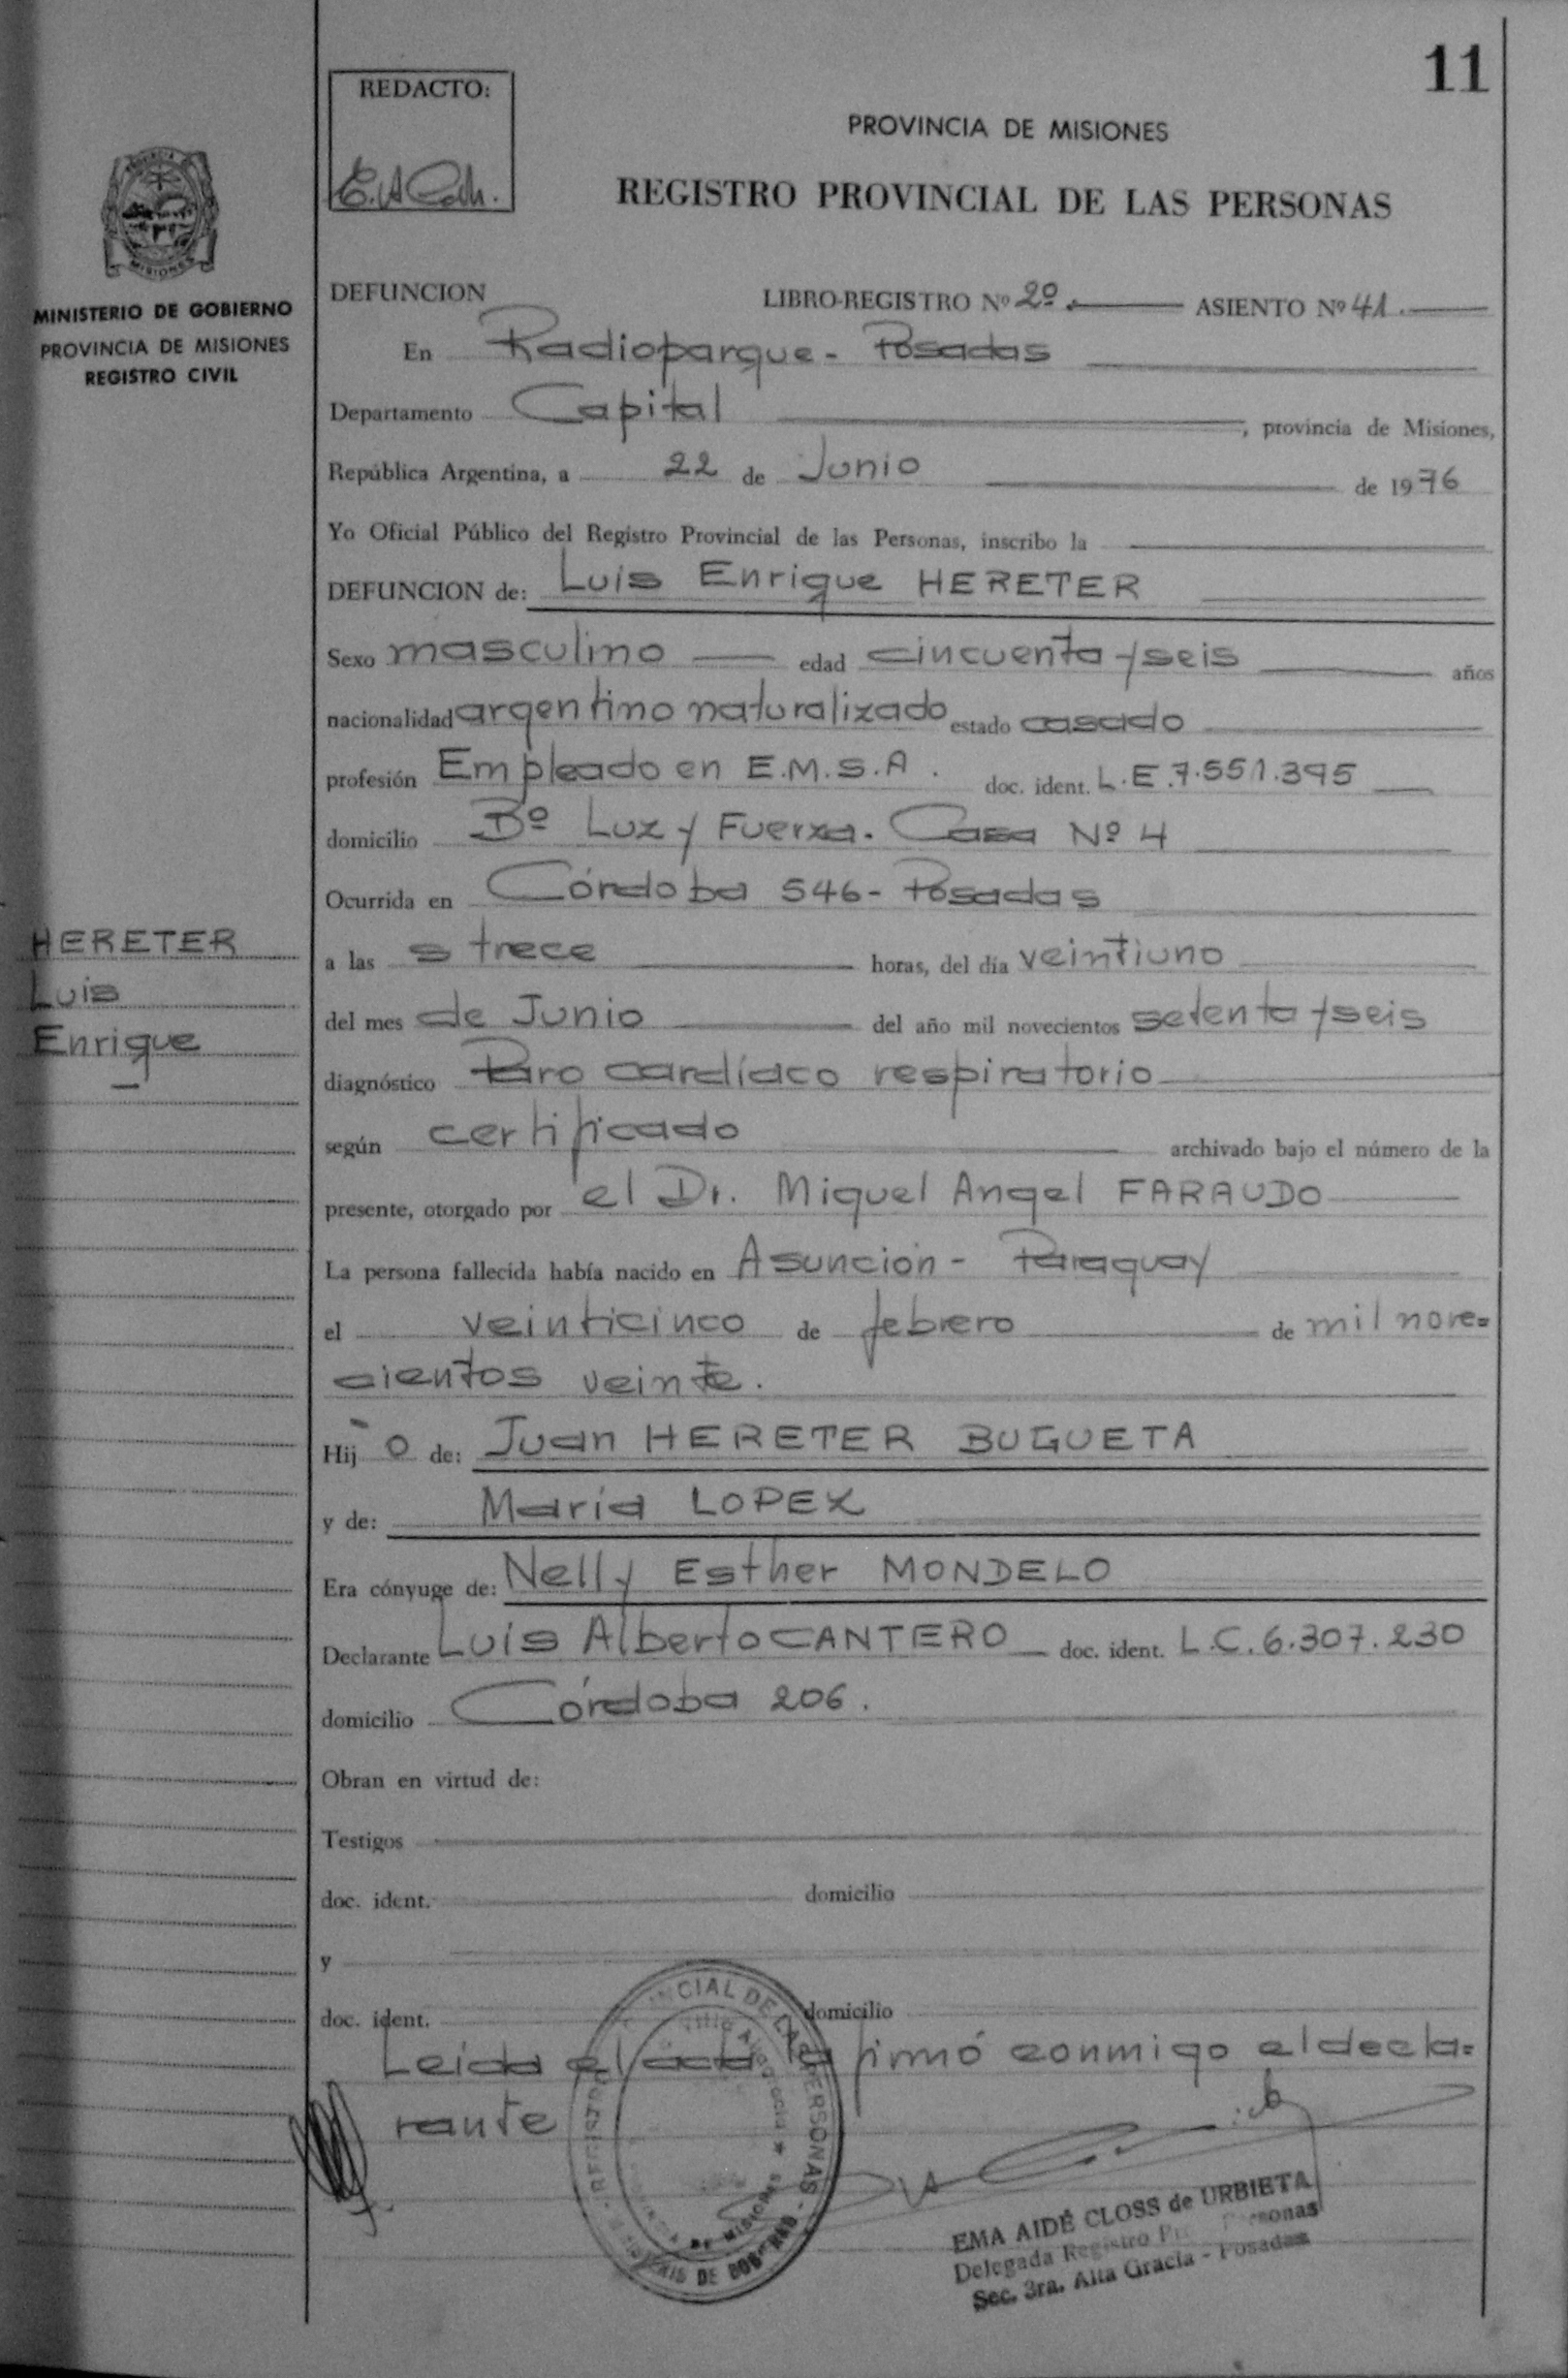 11
REDACTO:
PROVINCIA DE MISIONES
REGISTRO PROVINCIAL DE LAS PERSONAS
MISIONES
MINISTERIO DE GOBIERNO
PROVINCIA DE MISIONES
REGISTRO CIVIL
DEFUNCION LIBRO-REGISTRO Nº 2º. ASIENTO Nº 41.
En Radioparque - Posadas
Departamento Capital, provincia de Misiones,
República Argentina, a 22 de Junio de 1976
Yo Oficial Público del Registro Provincial de las Personas, inscribo la
DEFUNCION de: Luis Enrique HERETER
Sexo masculino edad cincuenta y seis años
nacionalidad argentino naturalizado estado casado
profesión Empleado en E.M.S.A. doc. ident. L.E.7.551.395
domicilio Bº Luz y Fuerza. Casa Nº 4
Ocurrida en Córdoba 546 - Posadas
HERETER
Luis
Enrique
a las s trece horas, del día veintiuno
del mes de Junio del año mil novecientos setenta y seis
diagnóstico Paro cardíaco respiratorio
según certificado archivado bajo el número de la
presente, otorgado por el Dr. Miguel Angel FARAUDO
La persona fallecida había nacido en Asunción - Paraguay
el veinticinco de febrero de mil nove=
cientos veinte.
Hij o de: Juan HERETER BUGUETA
y de: María LOPEZ
Era cónyuge de: Nelly Esther MONDELO
Declarante Luis Alberto CANTERO doc. ident. L.C.6.307.230
domicilio Córdoba 206.
Obran en virtud de:
Testigos
doc. ident. domicilio
y
doc. ident. domicilio
Leida el acta la firmó conmigo el decla=
rante
EMA AIDÉ CLOSS de URBIETA
Delegada Registro Personas
Sec. 3ra. Alta Gracia - Posadas